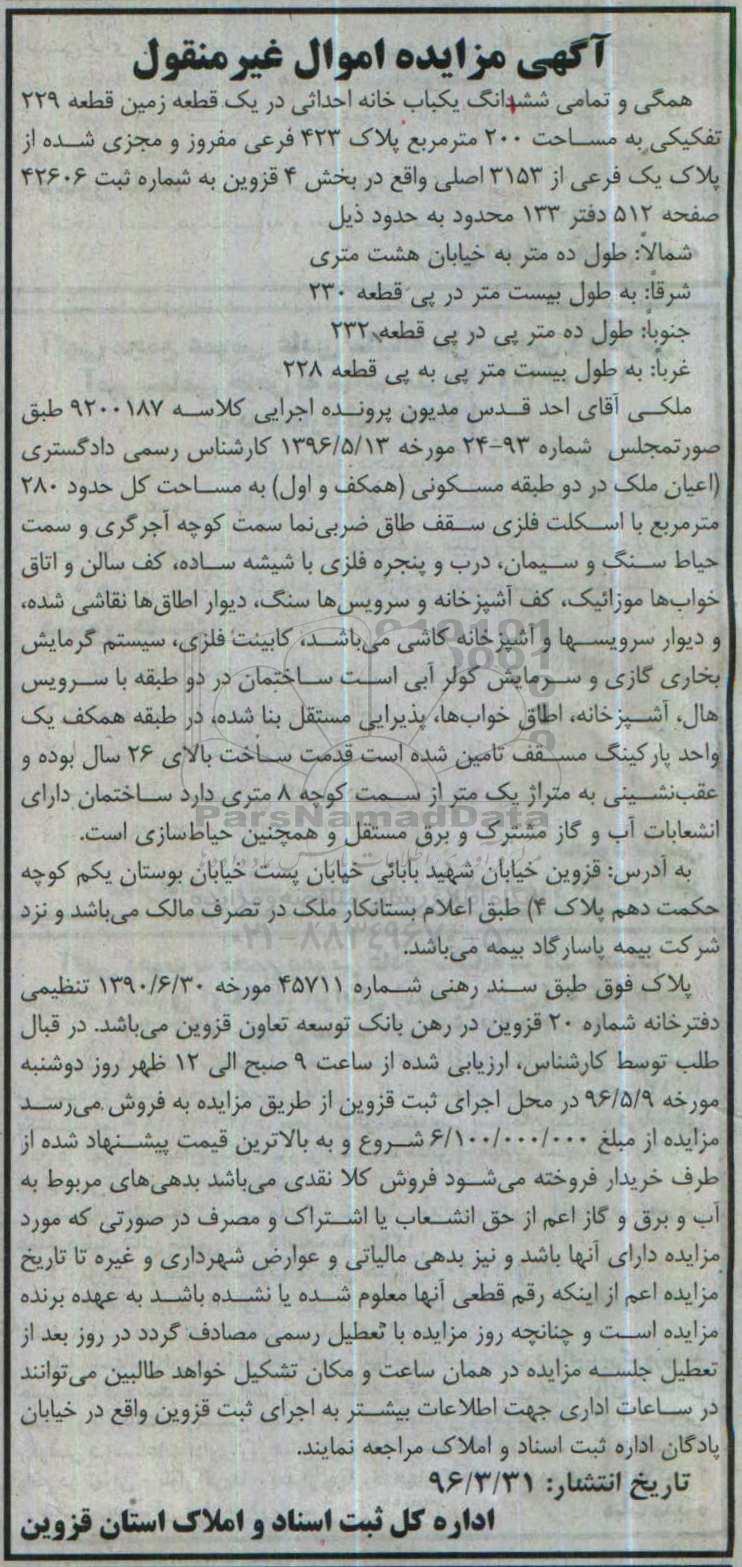 آگهی مزایده اموال غیرمنقول
همگی و تمامی ششدانگ یکباب خانه احداثی در یک قطعه زمین قطعه ۲۲۹
تفکیکی به مساحت ۲۰۰ مترمربع پلاک ۴۲۳ فرعی مفروز و مجزی شده از
پلاک یک فرعی از ۳۱۵۳ اصلی واقع در بخش ۴ قزوین به شماره ثبت ۴۲۶۰۶
صفحه ۵۱۲ دفتر ۱۳۳ محدود به حدود ذیل
شمالاً: طول ده متر به خیابان هشت متری
شرقاً: به طول بیست متر در پی قطعه ۲۳۰
جنوباً: طول ده متر پی در پی قطعه ۲۳۲
غرباً: به طول بیست متر پی به پی قطعه ۲۲۸
ملکی آقای احد قدس مدیون پرونده اجرایی کلاسه ۹۲۰۰۱۸۷ طبق
صورتمجلس شماره ۹۳-۲۴ مورخه ۱۳۹۶/۵/۱۳ کارشناس رسمی دادگستری
(اعیان ملک در دو طبقه مسکونی (همکف و اول) به مساحت کل حدود ۲۸۰
مترمربع با اسکلت فلزی سقف طاق ضربی‌نما سمت کوچه آجرگری و سمت
حیاط سنگ و سیمان، درب و پنجره فلزی با شیشه ساده، کف سالن و اتاق
خواب‌ها موزائیک، کف آشپزخانه و سرویس‌ها سنگ، دیوار اطاق‌ها نقاشی شده،
و دیوار سرویسها و آشپزخانه کاشی می‌باشد، کابینت فلزی، سیستم گرمایش
بخاری گازی و سرمایش کولر آبی است ساختمان در دو طبقه با سرویس
هال، آشپزخانه، اطاق خواب‌ها، پذیرایی مستقل بنا شده، در طبقه همکف یک
واحد پارکینگ مسقف تامین شده است قدمت ساخت بالای ۲۶ سال بوده و
عقب‌نشینی به متراژ یک متر از سمت کوچه ۸ متری دارد ساختمان دارای
ParsNamadData
انشعابات آب و گاز مشترک و برق مستقل و همچنین حیاط‌سازی است.
به آدرس: قزوین خیابان شهید بابائی خیابان پست خیابان بوستان یکم کوچه
حکمت دهم پلاک ۴) طبق اعلام بستانکار ملک در تصرف مالک می‌باشد و نزد
شرکت بیمه پاسارگاد بیمه می‌باشد.
پلاک فوق طبق سند رهنی شماره ۴۵۷۱۱ مورخه ۱۳۹۰/۶/۳۰ تنظیمی
دفترخانه شماره ۲۰ قزوین در رهن بانک توسعه تعاون قزوین می‌باشد. در قبال
طلب توسط کارشناس، ارزیابی شده از ساعت ۹ صبح الی ۱۲ ظهر روز دوشنبه
مورخه ۹۶/۵/۹ در محل اجرای ثبت قزوین از طریق مزایده به فروش می‌رسد
مزایده از مبلغ ۶/۱۰۰/۰۰۰/۰۰۰ شروع و به بالاترین قیمت پیشنهاد شده از
طرف خریدار فروخته می‌شود فروش کلا نقدی می‌باشد بدهی‌های مربوط به
آب و برق و گاز اعم از حق انشعاب یا اشتراک و مصرف در صورتی که مورد
مزایده دارای آنها باشد و نیز بدهی مالیاتی و عوارض شهرداری و غیره تا تاریخ
مزایده اعم از اینکه رقم قطعی آنها معلوم شده یا نشده باشد به عهده برنده
مزایده است و چنانچه روز مزایده با تعطیل رسمی مصادف گردد در روز بعد از
تعطیل جلسه مزایده در همان ساعت و مکان تشکیل خواهد طالبین می‌توانند
در ساعات اداری جهت اطلاعات بیشتر به اجرای ثبت قزوین واقع در خیابان
پادگان اداره ثبت اسناد و املاک مراجعه نمایند.
تاریخ انتشار: ۹۶/۳/۳۱
اداره کل ثبت اسناد و املاک استان قزوین